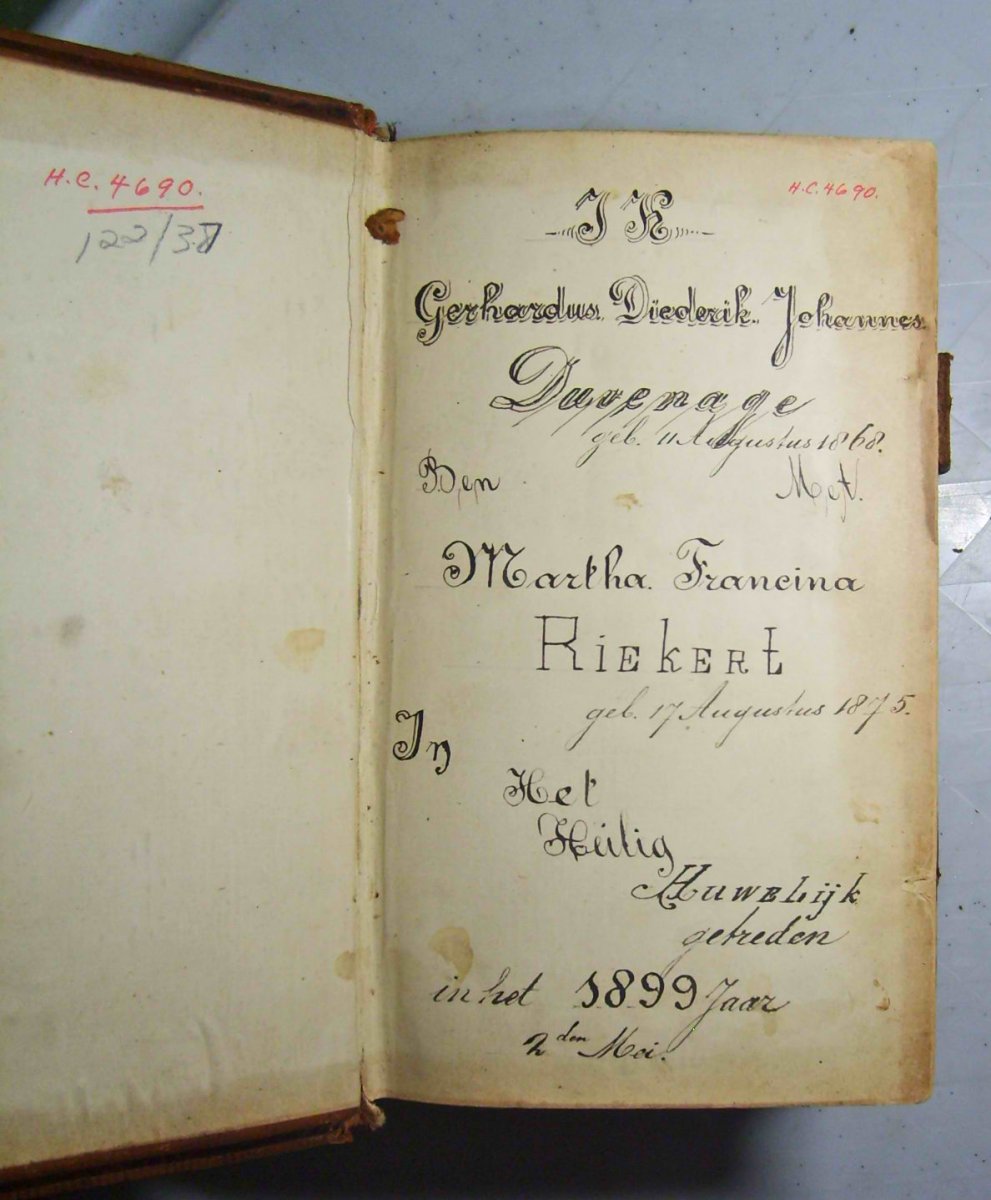 H.C. 4690.
122/37
H.C. 4690.
IK
Gerhardus. Diederik. Johannes.
Duvenage
geb. 11 Augustus 1868.
Ben Met.
Martha. Francina
RiEkERt
geb. 17 Augustus 1875.
In
Het
Heilig
Huwelijk
getreden
in het 1899 Jaar
2den Mei.